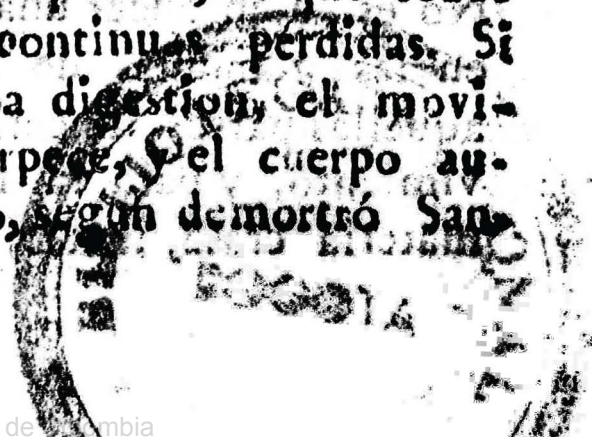 continuas pérdidas. Si
a digestion, el movi-
rpece, y el cuerpo au-
o, segun demortró San-
BOGOTA
de Colombia